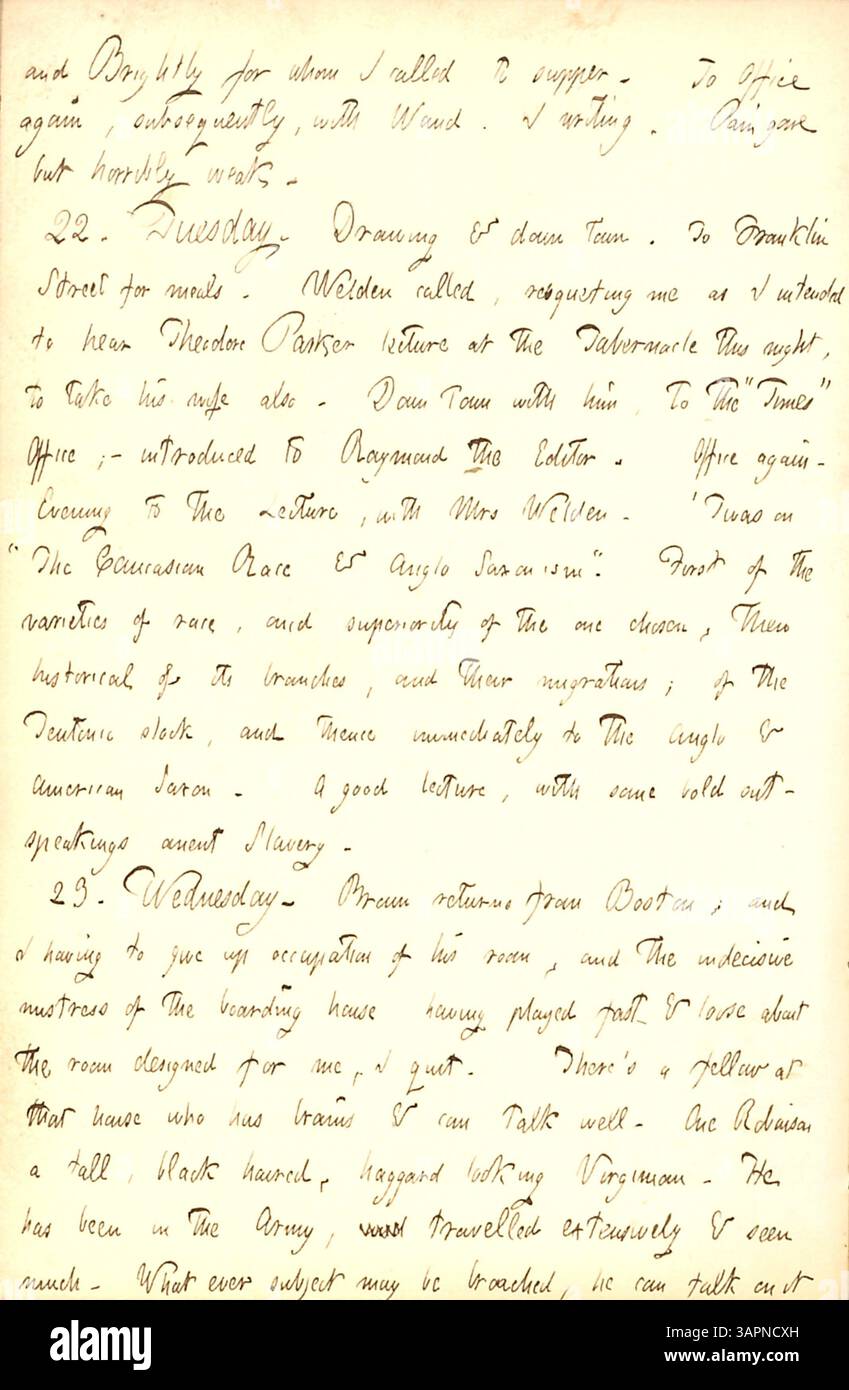 and Brightly for whom I called to supper - To Office
again, subsequently, with Waud. I writing. Pain gone
but horribly weak -
22. Tuesday. Drawing & down town. To Franklin
Street for meals. Welden called, requesting me as I intended
to hear Theodore Parker lecture at the Tabernacle this night,
to take his wife also - Down Town with him, to the "Times"
Office; - introduced to Raymond the Editor. Office again -
Evening to the Lecture, with Mrs Welden - 'Twas on
"The Caucasian Race & Anglo Saxonism". First of the
varieties of race, and superiority of the one chosen, then
historical of its branches, and their migrations; of the
Teutonic stock, and thence immediately to the Anglo &
American Saxon - A good lecture, with some bold out-
speakings anent Slavery -
23. Wednesday - Brown returns from Boston; and
I having to give up occupation of his room, and the indecisive
mistress of the boarding house having played fast & loose about
the room designed for me, I quit. There's a fellow at
that house who has brains & can talk well - One Robinson
a tall, black haired, haggard looking Virginian - He
has been in the Army, travelled extensively & seen
much - What ever subject may be broached, he can talk on it
alamy
Image ID: 3APNCXH
www.alamy.com